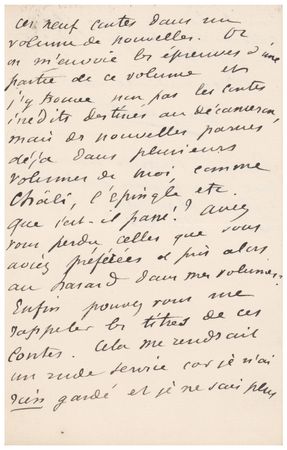 ces neuf contes dans un
volume de nouvelles. Or
on m'envoie les épreuves d'une
partie de ce volume et
j'y trouve non pas les contes
inédits destinés au Décameron,
mais des nouvelles parues
déjà dans plusieurs
volumes de moi, comme
Châli, l'Épingle etc.
que s'est-il passé? Avez
vous perdu celles que vous
aviez préférées et pris alors
au hasard dans mes volumes?
Enfin pouvez vous me
rappeler les titres de ces
contes. Cela me rendrait
un rude service car je n'ai
rien gardé et je ne sais plus